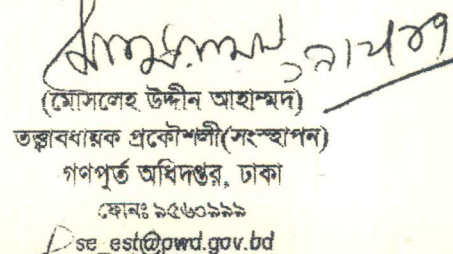 (মোসলেহ উদ্দীন আহাম্মদ)
তত্ত্বাবধায়ক প্রকৌশলী(সংস্থাপন)
গণপূর্ত অধিদপ্তর, ঢাকা
ফোনঃ ৯৫৬০৯৯৯
se_est@pwd.gov.bd